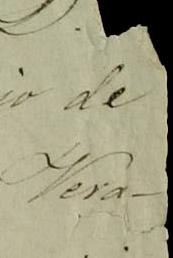 io de
Vera-